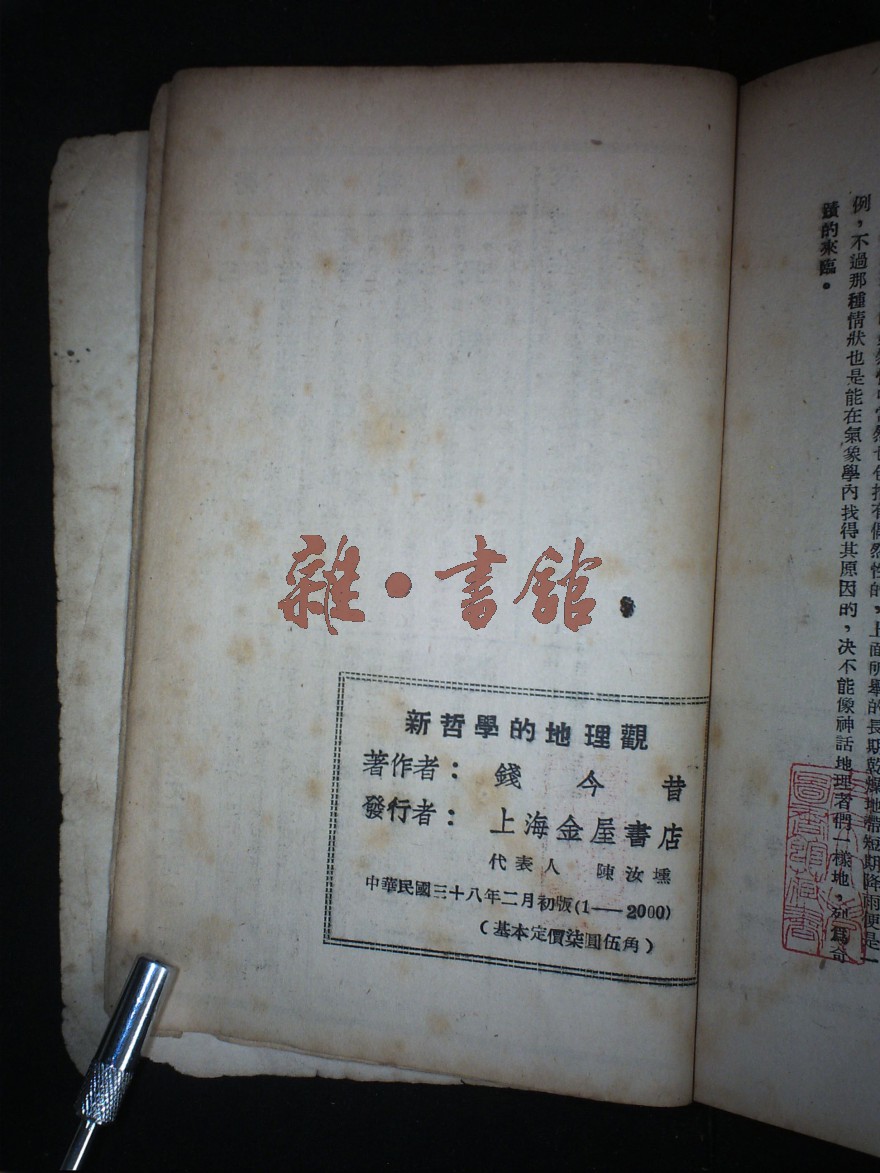 例，不過那種情狀也是能在氣象學內找得其原因的，决不能像神話地理者們一樣地，列爲奇
蹟的來臨。
雜·書舘
新哲學的地理觀
著作者：錢今昔
發行者：上海金屋書店
代表人 陳汝壎
中華民國三十八年二月初版(1——2000)
（基本定價柒圓伍角）